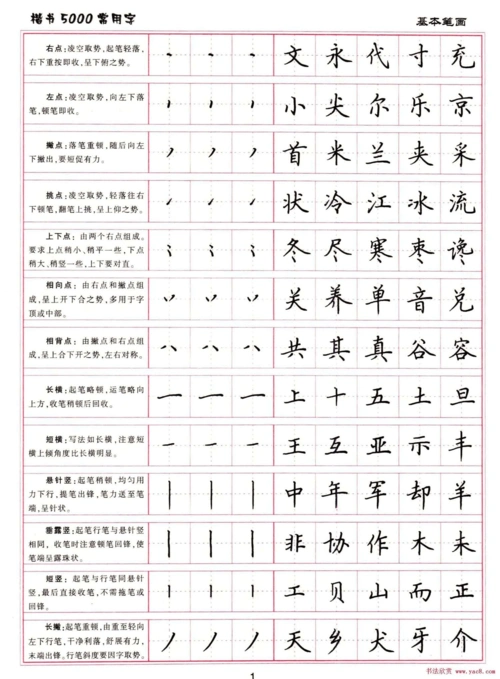 楷书5000常用字 基本笔画
右点:凌空取势,起笔轻落,
右下重按即收,呈下俯之势。
文 永 代 寸 充
左点:凌空取势,向左下落
笔,顿笔即收。
小 尖 尔 乐 京
撇点:落笔重顿,随后向左
下撇出,要短促有力。
首 米 兰 夹 采
挑点:凌空取势,轻落往右
下顿笔,翻笔上挑,呈上仰之势。
状 冷 江 冰 流
上下点:由两个右点组成。
要求上点稍小,稍平一些,下点
稍大,稍竖一些,上下要对直。
冬 尽 寒 枣 谗
相向点:由右点和撇点组
成,呈上开下合之势,多用于字
顶或中部。
关 养 单 音 兑
相背点:由撇点和右点组
成,呈上合下开之势,左右对称。
共 其 真 谷 容
长横:起笔略顿,运笔略向
上方,收笔稍顿后回收。
上 十 五 土 旦
短横:写法如长横,注意短
横上倾角度比长横明显。
王 互 亚 示 丰
悬针竖:起笔稍顿,均匀用
力下行,提笔出锋,笔力送至笔
端,呈针状。
中 年 军 却 羊
垂露竖:起笔行笔与悬针竖
相同,收笔时注意顿笔回锋,使
笔端呈露珠状。
非 协 作 木 未
短竖:起笔与行笔同悬针
竖,最后直接收笔,不需拖笔或
回锋。
工 贝 山 而 正
长撇:起笔重顿,由重至轻向
左下行笔,干净利落,舒展有力,
末端出锋。行笔斜度要因字取势。
天 乡 犬 牙 介
1
书法欣赏 www.yac8.com